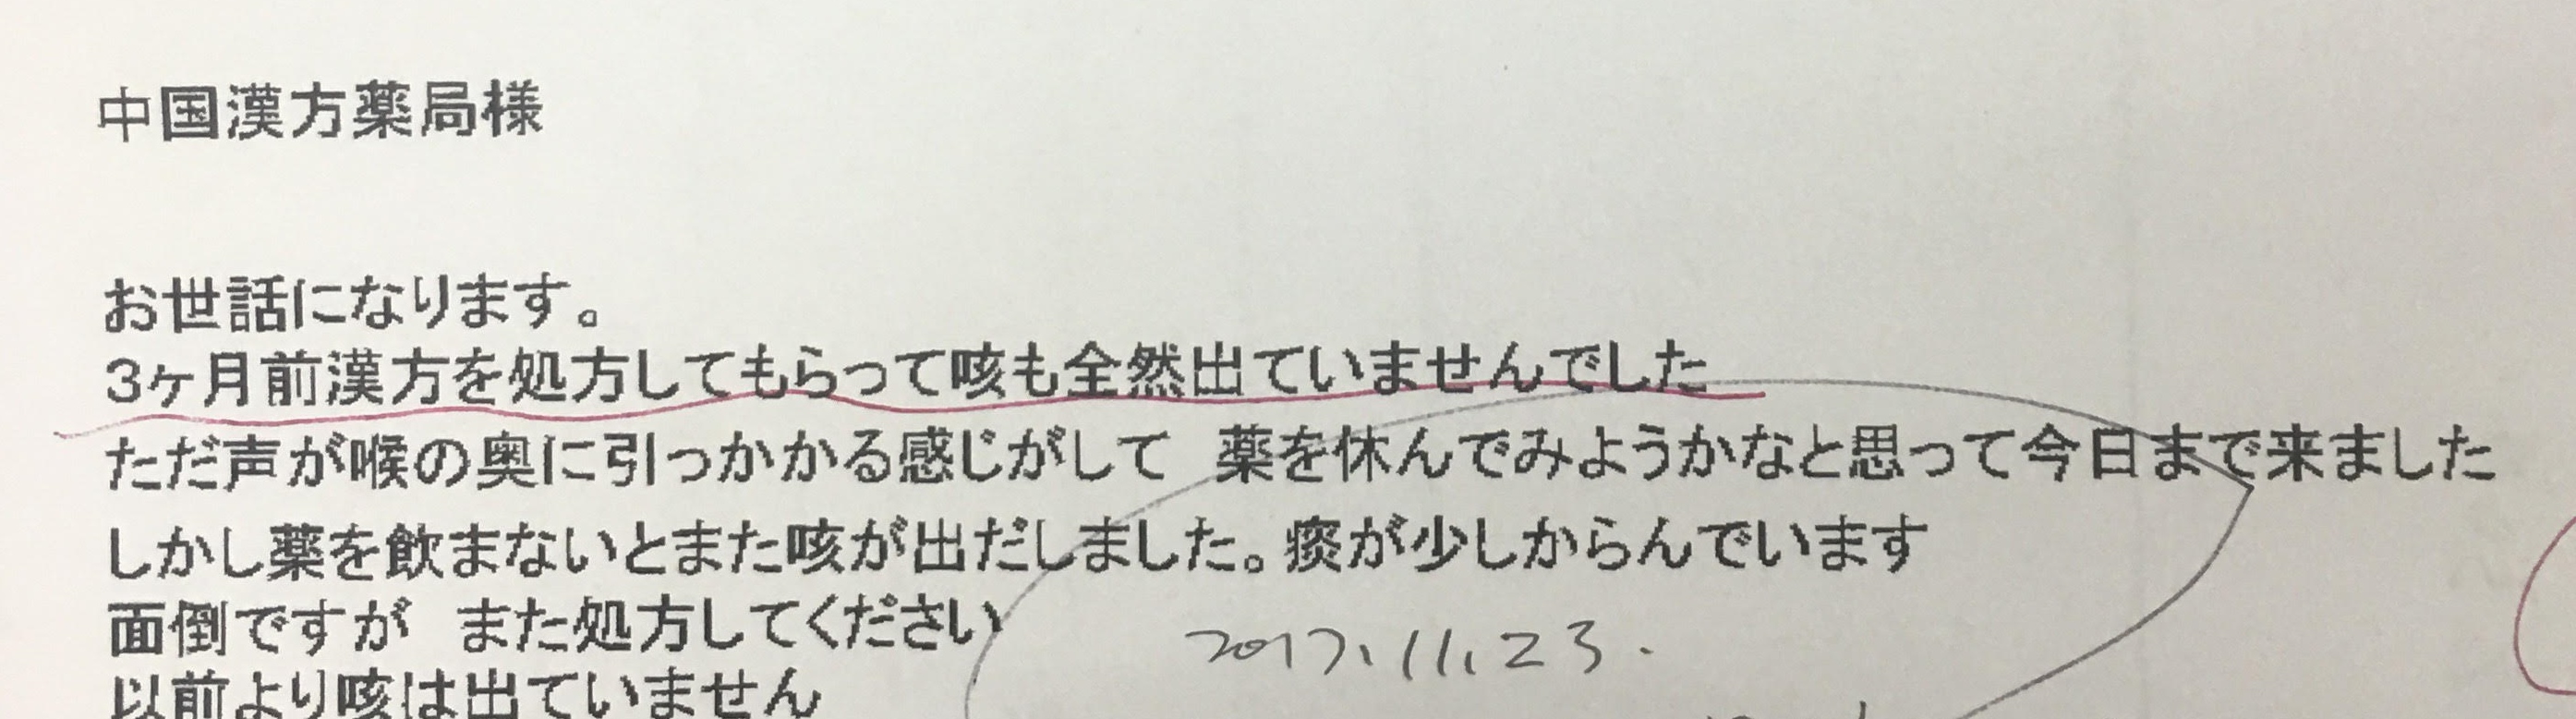 中国漢方薬局様
お世話になります。
3ヶ月前漢方を処方してもらって咳も全然出ていませんでした
ただ声が喉の奥に引っかかる感じがして　薬を休んでみようかなと思って今日まで来ました
しかし薬を飲まないとまた咳が出だしました。痰が少しからんでいます
面倒ですが　また処方してください
2017.11.23.
以前より咳は出ていません